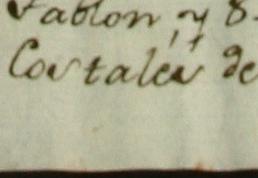 Tablon, y 8
Costales de